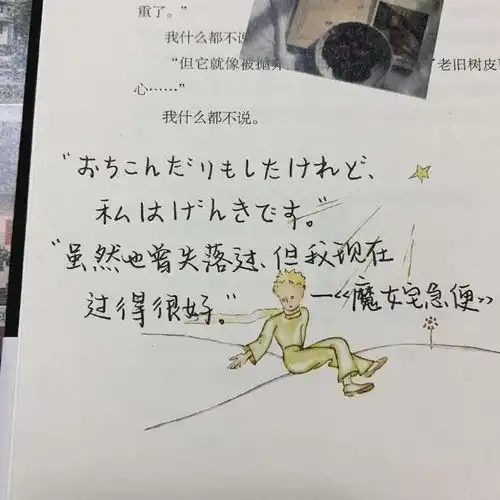 重了。”
我什么都不说
“但它就像被抛弃
了老旧树皮
心……”
我什么都不说。
“おちこんだりもしたけれど、
私はげんきです。”
“虽然也曾失落过、但我现在
过得很好。”
—《魔女宅急便》